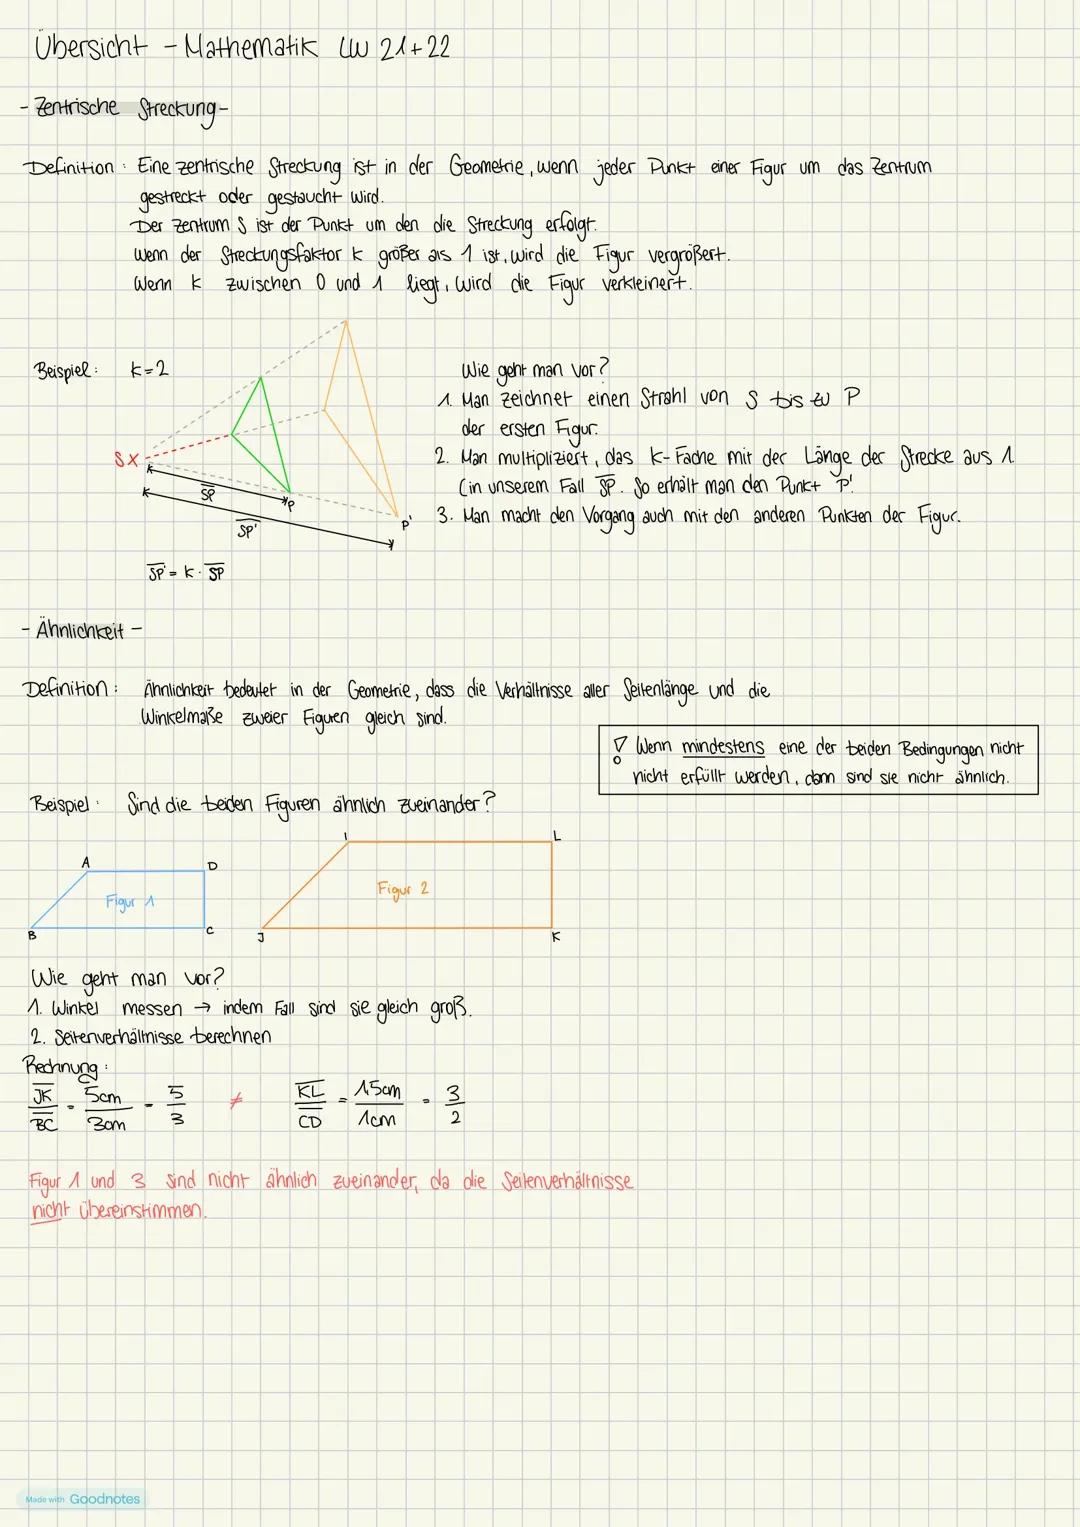 Übersicht - Mathematik LW 21+22
- Zentrische Streckung -
Definition: Eine zentrische Streckung ist in der Geometrie, wenn jeder Punkt einer Figur um das Zentrum
gestreckt oder gestaucht wird.
Der Zentrum S ist der Punkt um den die Streckung erfolgt.
Wenn der Streckungsfaktor k größer als 1 ist, wird die Figur vergrößert.
Wenn k zwischen 0 und 1 liegt, wird die Figur verkleinert.
Beispiel: k=2
S
SP
P
SP'
P'
SP' = k · SP
Wie geht man vor?
1. Man zeichnet einen Strahl von S bis zu P
der ersten Figur.
2. Man multipliziert, das k-Fache mit der Länge der Strecke aus 1.
(in unserem Fall SP. So erhält man den Punkt P'.
3. Man macht den Vorgang auch mit den anderen Punkten der Figur.
- Ähnlichkeit -
Definition: Ähnlichkeit bedeutet in der Geometrie, dass die Verhältnisse aller Seitenlänge und die
Winkelmaße zweier Figuren gleich sind.
! Wenn mindestens eine der beiden Bedingungen nicht
nicht erfüllt werden, dann sind sie nicht ähnlich.
Beispiel: Sind die beiden Figuren ähnlich zueinander?
A D
Figur 1
B C
I L
Figur 2
J K
Wie geht man vor?
1. Winkel messen → indem Fall sind sie gleich groß.
2. Seitenverhältnisse berechnen
Rechnung:
JK/BC = 5cm/3cm = 5/3 ≠ KL/CD = 1,5cm/1cm = 3/2
Figur 1 und 3 sind nicht ähnlich zueinander, da die Seitenverhältnisse
nicht übereinstimmen.
Made with Goodnotes